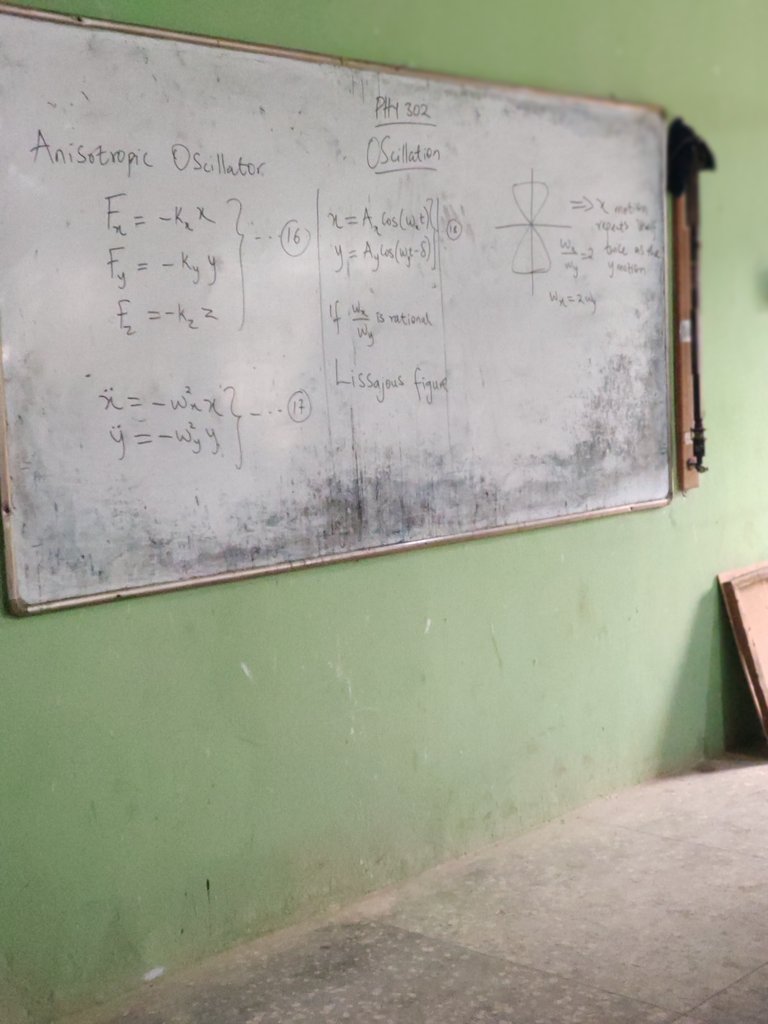 PHY 302
Oscillation
Anisotropic Oscillator
Fₓ = -kₓ x
F_y = -k_y y
F_z = -k_z z
} --- (16)
ẍ = -ω²ₓ x
ÿ = -ω²_y y
} --- (17)
x = Aₓ cos(ωₓt)
y = A_y cos(ω_yt-δ)
} (18)
If ωₓ/ω_y is rational
Lissajous figure
=> x motion
repeats
ωₓ/ω_y = 2 twice as the
y motion
ωₓ = 2ω_y